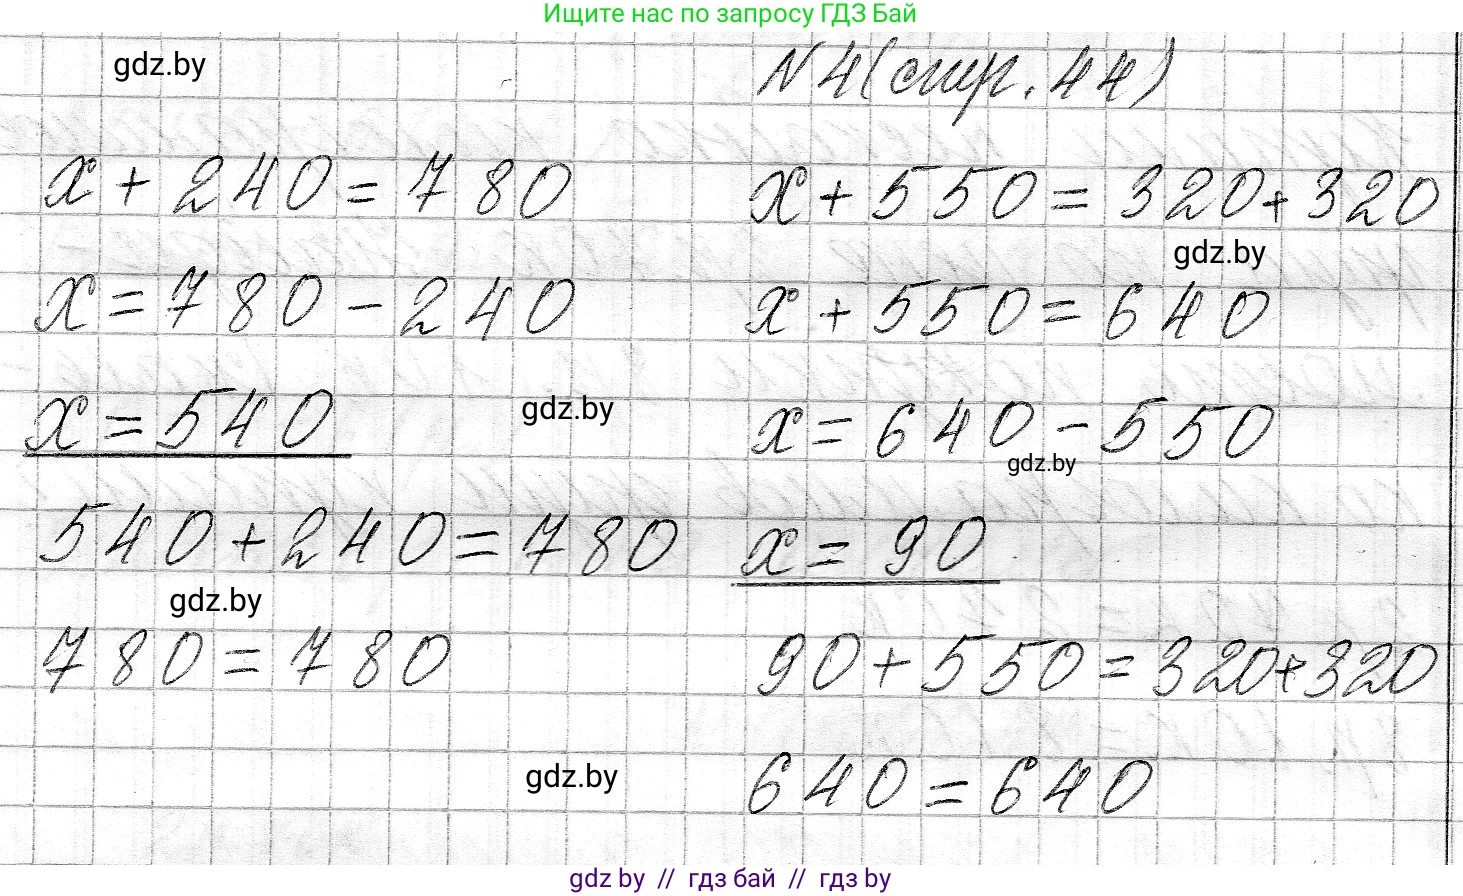 Ищите нас по запросу ГДЗ Бай
gdz.by
N 4 (стр. 44)
x + 240 = 780
x = 780 - 240
x = 540
540 + 240 = 780
780 = 780
x + 550 = 320 + 320
x + 550 = 640
x = 640 - 550
x = 90
90 + 550 = 320 + 320
640 = 640
gdz.by
gdz.by
gdz.by
gdz.by
gdz.by
gdz by // гдз бай // гдз by